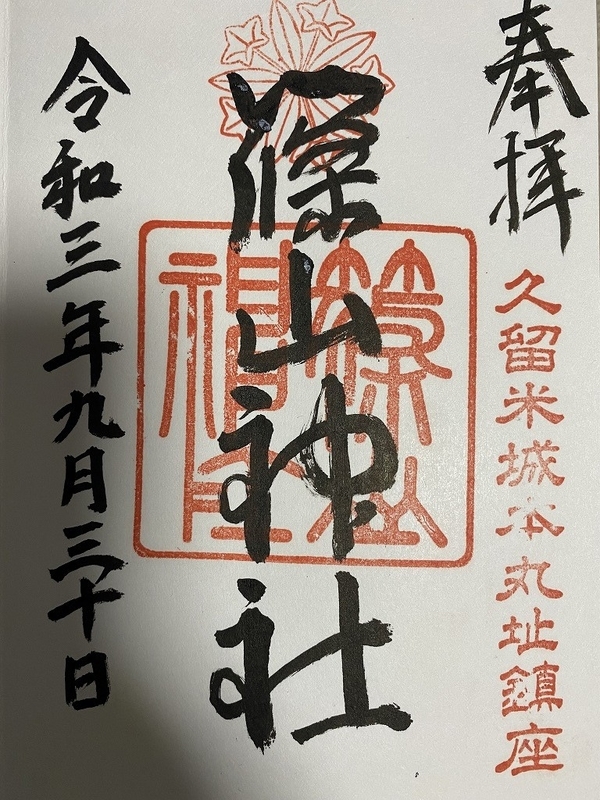 奉拝
久留米城本丸址鎮座
篠山神社
篠山神社
令和三年九月三十日